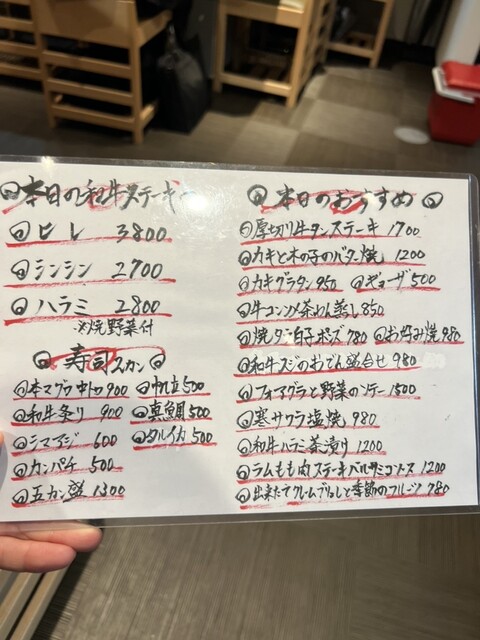 本日の和牛ステーキ
ヒレ 3800
シンシン 2700
ハラミ 2800
※焼野菜付
寿司 2カン
本マグロ中トロ 900 帆立 500
和牛炙り 900 真鯛 500
シマアジ 600 タルイカ 500
カンパチ 500
五カン盛 1300
本日のおすすめ
厚切り牛タンステーキ 1700
カキと木の子のバター焼 1200
カキグラタン 950 ギョーザ 500
牛コンソメ茶わん蒸し 850
焼タラ白子ポンズ 780 お好み焼 980
和牛スジのおでん盛合せ 980
フォアグラと野菜のソテー 1500
寒サワラ塩焼 980
和牛ハラミ茶漬り 1200
ラムもも肉ステーキバルサミコソース 1200
出来たてクレームブリュレと季節のフルーツ 780